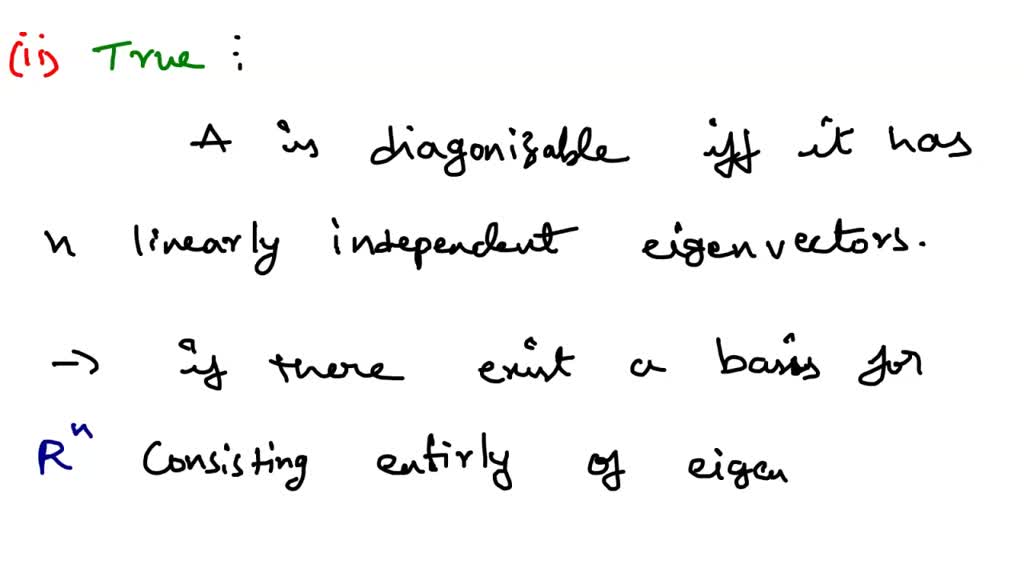 (ii) True :
A is diagonizable iff it has
n linearly independent eigenvectors.
→ if there exist a basis for
Rⁿ Consisting entirly of eigen